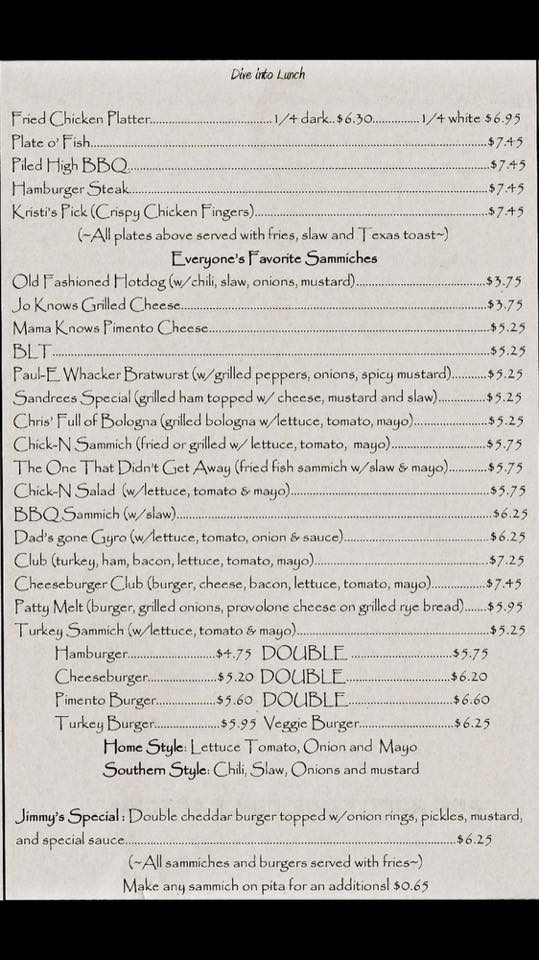 Dive into Lunch
Fried Chicken Platter..............................1/4 dark..$6.30............1/4 white $6.95
Plate o' Fish....................................................................................................$7.45
Piled High BBQ...........................................................................................$7.45
Hamburger Steak..........................................................................................$7.45
Kristi's Pick (Crispy Chicken Fingers)..........................................................$7.45
(~All plates above served with fries, slaw and Texas toast~)
Everyone's Favorite Sammiches
Old Fashioned Hotdog (w/chili, slaw, onions, mustard)................................$3.75
Jo Knows Grilled Cheese..............................................................................$3.75
Mama Knows Pimento Cheese.......................................................................$5.25
BLT..............................................................................................................$5.25
Paul-E Whacker Bratwurst (w/grilled peppers, onions, spicy mustard)..........$5.25
Sandrees Special (grilled ham topped w/ cheese, mustard and slaw)............$5.25
Chris' Full of Bologna (grilled bologna w/lettuce, tomato, mayo)....................$5.25
Chick-N Sammich (fried or grilled w/ lettuce, tomato, mayo)........................$5.75
The One That Didn't Get Away (fried fish sammich w/slaw & mayo)..........$5.75
Chick-N Salad (w/lettuce, tomato & mayo)..................................................$5.75
BBQ Sammich (w/slaw)................................................................................$6.25
Dad's gone Gyro (w/lettuce, tomato, onion & sauce)....................................$6.25
Club (turkey, ham, bacon, lettuce, tomato, mayo)...........................................$7.25
Cheeseburger Club (burger, cheese, bacon, lettuce, tomato, mayo)..............$7.45
Patty Melt (burger, grilled onions, provolone cheese on grilled rye bread)......$5.95
Turkey Sammich (w/lettuce, tomato & mayo)................................................$5.25
Hamburger.......................$4.75 DOUBLE ..........................$5.75
Cheeseburger....................$5.20 DOUBLE...........................$6.20
Pimento Burger..................$5.60 DOUBLE...........................$6.60
Turkey Burger.................$5.95 Veggie Burger.........................$6.25
Home Style: Lettuce Tomato, Onion and Mayo
Southern Style: Chili, Slaw, Onions and mustard
Jimmy's Special : Double cheddar burger topped w/onion rings, pickles, mustard,
and special sauce...................................................................................$6.25
(~All sammiches and burgers served with fries~)
Make any sammich on pita for an additionsl $0.65